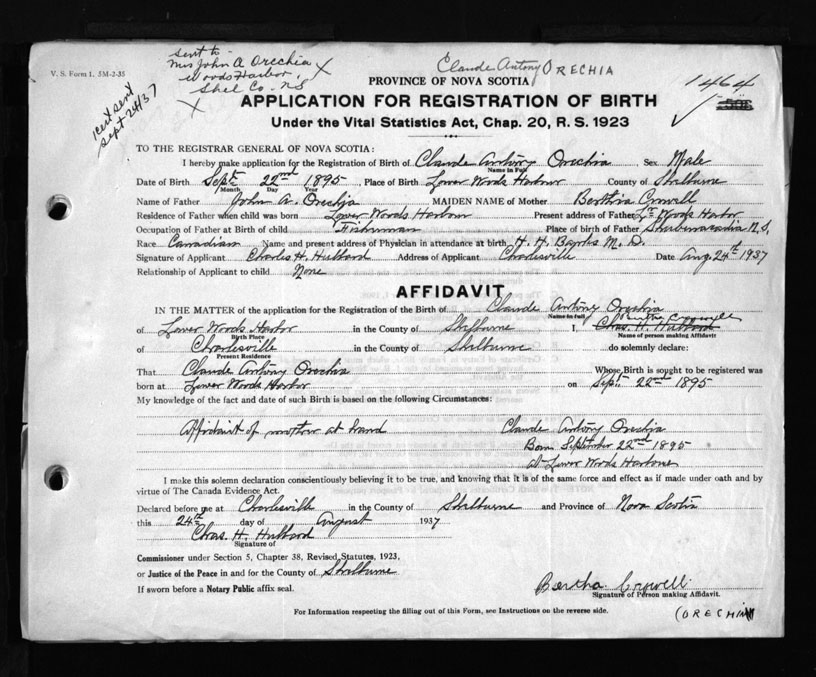 sent to
Mrs John A Orechia
Woods Harbor,
Shel Co. NS
V. S. Form 1. 5M-2-35
cert sent
sept 24/37
Claude Antony ORECHIA
1464
PROVINCE OF NOVA SCOTIA
APPLICATION FOR REGISTRATION OF BIRTH
Under the Vital Statistics Act, Chap. 20, R. S. 1923
TO THE REGISTRAR GENERAL OF NOVA SCOTIA:
I hereby make application for the Registration of Birth of Claude Antony Orechia Sex Male
Name in Full
Date of Birth Sept. 22nd 1895, Place of Birth Lower Woods Harbour County of Shelburne
Month Day Year
Name of Father John A. Orechia MAIDEN NAME of Mother Berthia Crowell
Residence of Father when child was born Lower Woods Harbour Present address of Father Lr. Woods Harbor
Occupation of Father at Birth of child Fisherman Place of birth of Father Shubenacadia N.S.
Race Canadian Name and present address of Physician in attendance at birth H. H. Banks M. D.
Signature of Applicant Charles H. Hubbard Address of Applicant Charlesville Date Aug. 24th 1937
Relationship of Applicant to child None
AFFIDAVIT.
IN THE MATTER of the application for the Registration of the Birth of Claude Antony Orechia
Name in Full
of Lower Woods Harbor in the County of Shelburne I, Chas. H. Hubbard Crowell
Birth Place Name of Person making Affidavit
of Charlesville in the County of Shelburne do solemnly declare:
Present Residence
That Claude Antony Orechia Whose Birth is sought to be registered was
born at Lower Woods Harbor on Sept. 22nd 1895
My knowledge of the fact and date of such Birth is based on the following Circumstances:
Affidavit of mother at hand Claude Antony Orechia
Born September 22nd 1895
at Lower Woods Harbour
I make this solemn declaration conscientiously believing it to be true, and knowing that it is of the same force and effect as if made under oath and by
virtue of The Canada Evidence Act.
Declared before me at Charlesville in the County of Shelburne and Province of Nova Scotia
this 24th day of August 1937
Chas. H. Hubbard
Signature of
Commissioner under Section 5, Chapter 38, Revised Statutes, 1923,
or Justice of the Peace in and for the County of Shelburne
If sworn before a Notary Public affix seal.
Bertha Crowell
Signature of Person making Affidavit.
For Information respecting the filling out of this Form, see Instructions on the reverse side.
(ORECHIA)